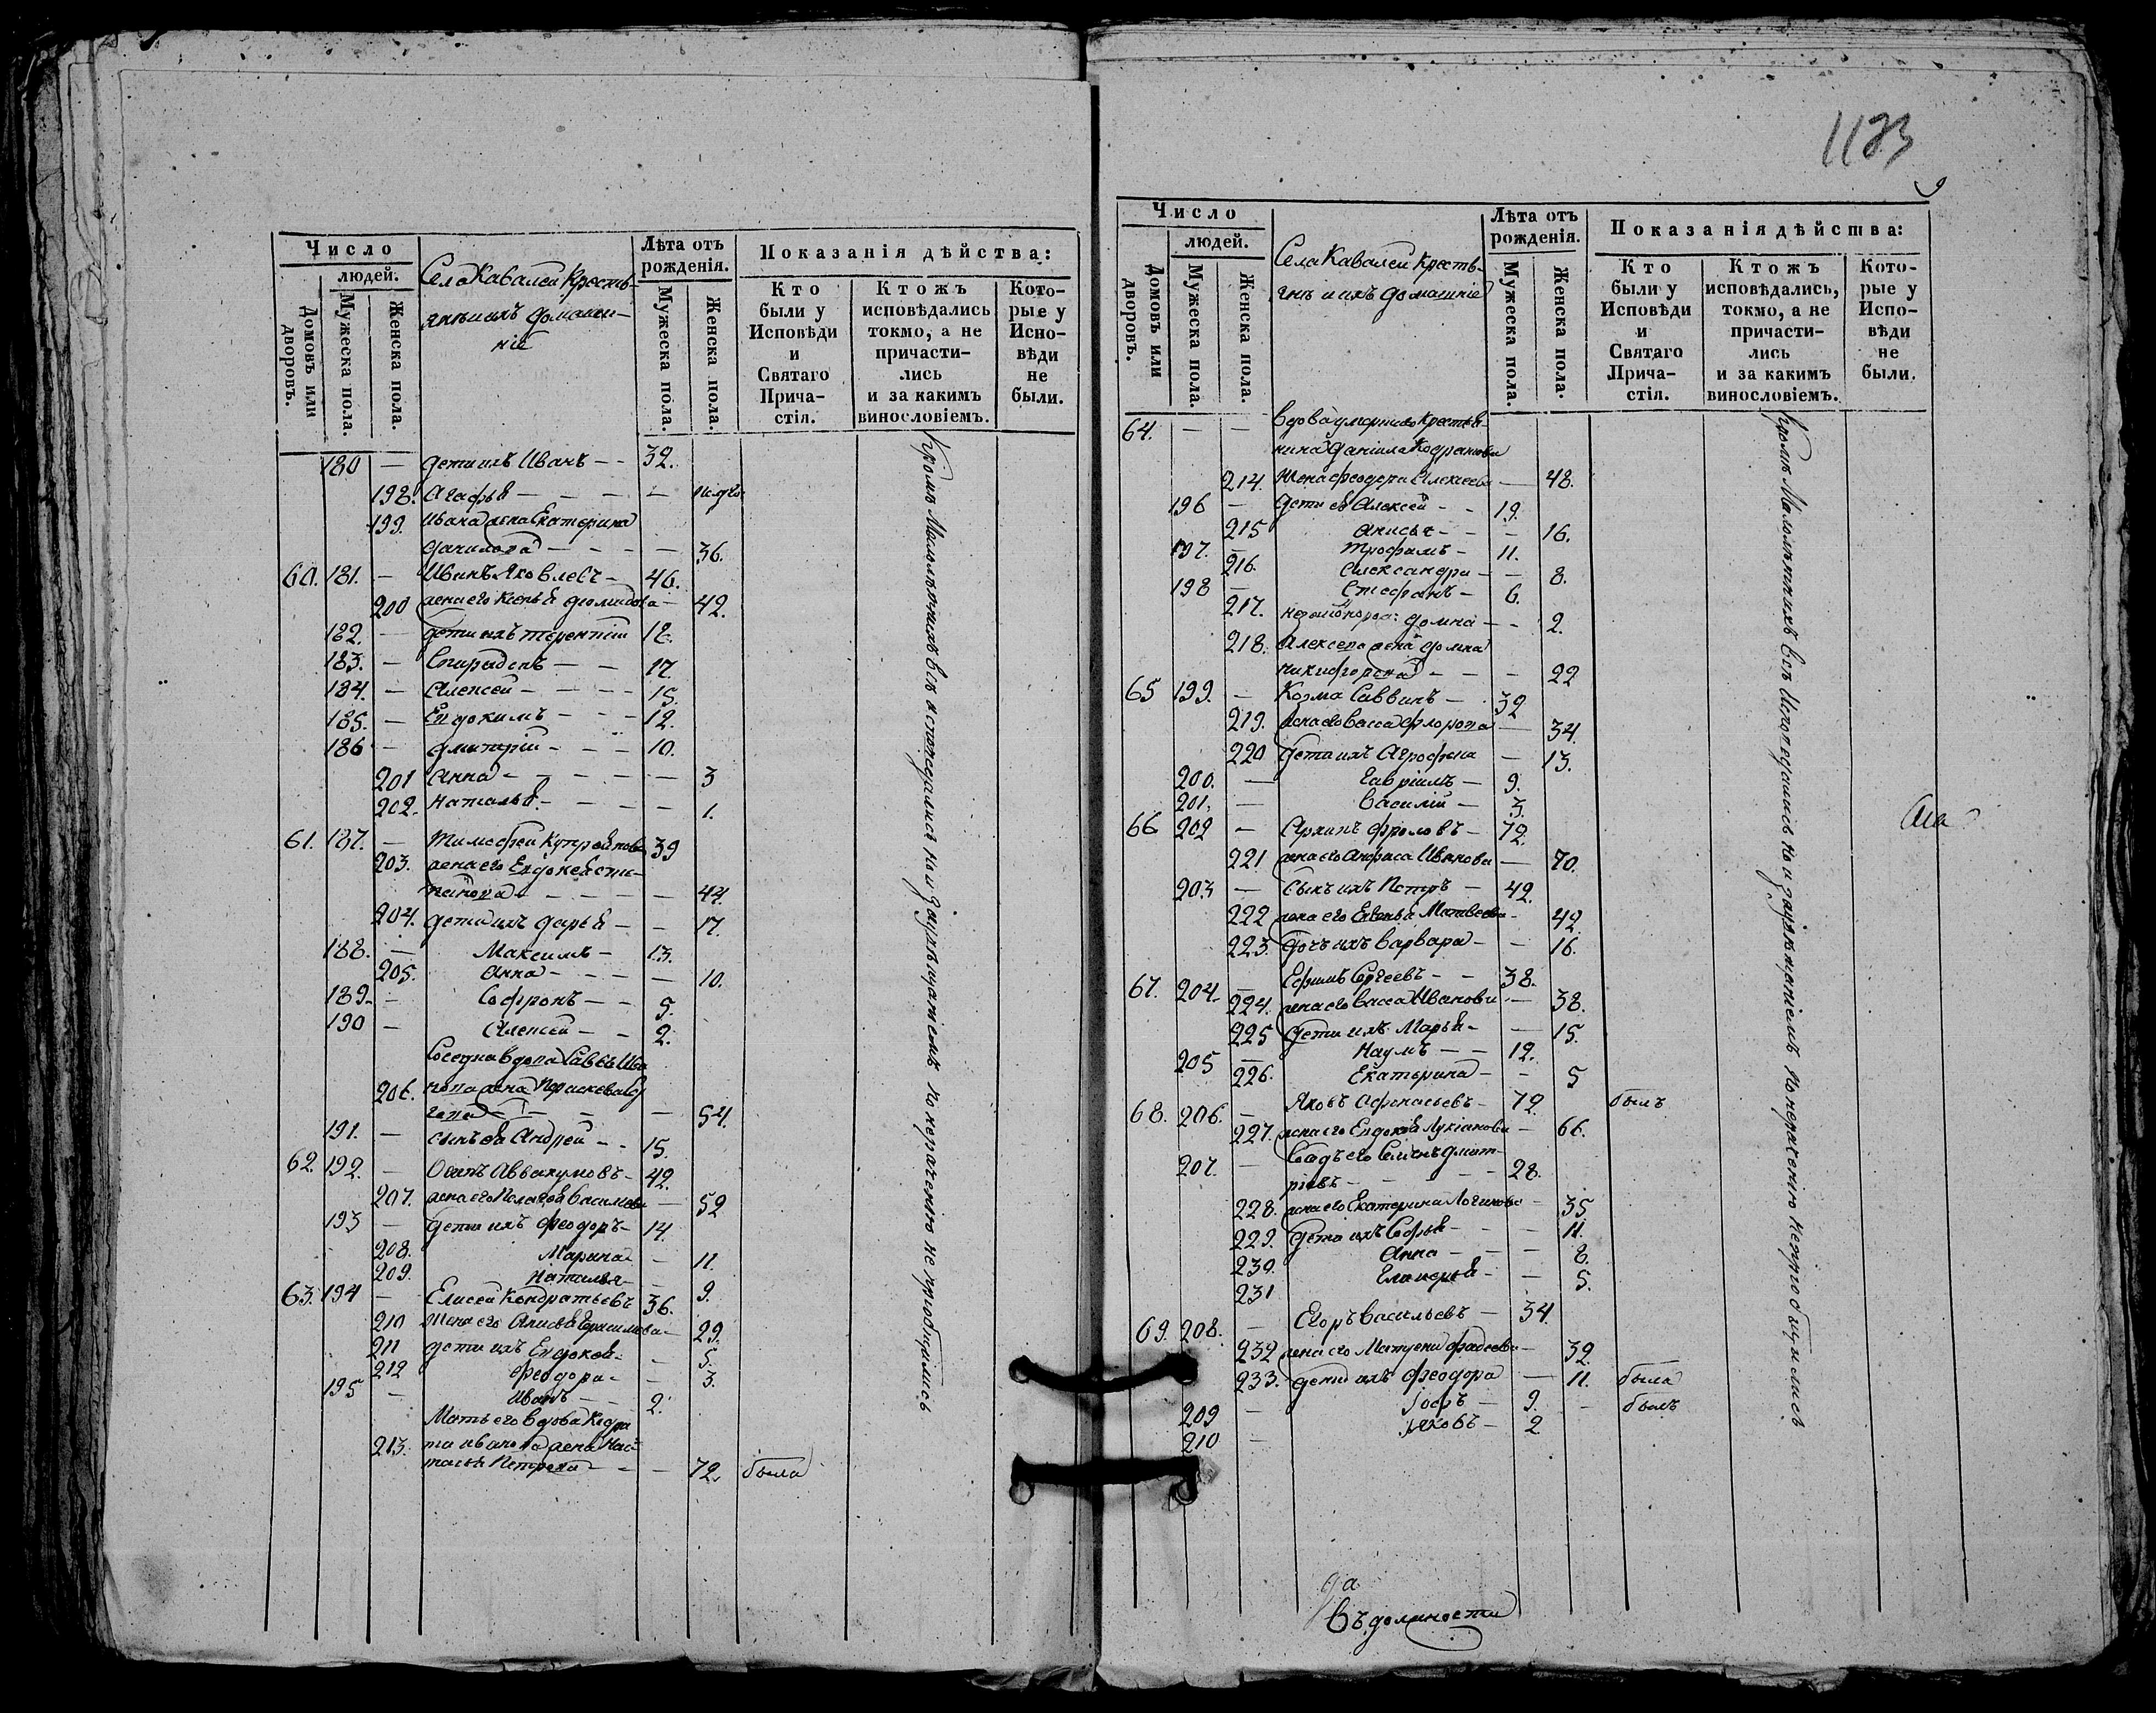 Число
людей.
Домовъ или дворовъ.
Мужеска пола.
Женска пола.
Села Кавалей Крестья-
яне и ихъ домаш-
ніе
Лѣта отъ рожденія.
Мужеска пола.
Женска пола.
Показанія дѣйства:
Кто были у Исповѣди и Святаго Прича-стія.
Ктожъ исповѣдались токмо, а не причасти-лись и за какимъ винословіемъ.
Кото-рые у Испо-вѣди не были.
180 — дети ихъ Иванъ — — 32.
198. Агафья — — — —
199. Ивана жена Екатерина
Данилова — — — — 36.
60. 181. — Иванъ Яковлевъ — 46.
200 жена его Ксенья — 42.
182. — дети ихъ Терентій 18.
183. — Спиридонъ — — 17.
184. — Алексей — — — — 15.
185. — Евдокимъ — — — 12.
186 — Дмитрій — — — 10.
201 Анна — — — — — 3
202. Наталья — — — — 1.
61. 187. — Тимофей Купреянова 39
203. жена его Евдокея Сте-
панова — — — — 44.
204. дети ихъ Дарья — — 17.
188. — Максимъ — 13.
205. Анна — — — — 10.
189. — Софронъ — — 5.
190 — Алексей — — 2.
вдова Саввы Ива
206. нова жена Параскева
— — — — 54.
191. — сынъ ея Андрей — — 15.
62. 192. — Осипъ Аввакумовъ — 42.
207. жена его Пелагея Василева — 52
193 — дети ихъ Феодоръ — 14
208. Марина — — 11.
209. Наталья — — 9.
63. 194 — Елисей Кондратьевъ 36.
210 Жена его Анисья Герасимова — 29.
211 дети ихъ Евдокея — — 5.
212 Феодора — — 3.
195 — Иванъ — 2.
Мать его вдова Кодра
213. та Иванова жена Нас-
тасья Петрова — — — 72. была
Кроме Малолетнихъ все исповедались но и за увѣщаніемъ по нераченію не пріобщились
1173
9
Число
людей.
Домовъ или дворовъ.
Мужеска пола.
Женска пола.
Села Кавалей Крестья-
яне и ихъ домашніе
Лѣта отъ рожденія.
Мужеска пола.
Женска пола.
Показанія дѣйства:
Кто были у Исповѣди и Святаго Прича-стія.
Ктожъ исповѣдались, токмо, а не причасти-лись и за какимъ винословіемъ.
Кото-рые у Испо-вѣди не были.
64. — — Вдова умершаго Крестья-
нина Даніила Кодратова
214. Жена Феодора Алексеева — 48.
196 — дети ея Алексей — — 19.
215 Анисья — — — 16.
197. — Трофимъ — 11.
216. Александра — — 8.
198 — Стефанъ — 6.
217. Домна — — 2.
218. Алексея жена Домна
Никифорова — — — 22
65 199. — Козма Саввинъ — 32
219. жена его Васса Флорова — 34.
220 дети ихъ Агрофена — 13.
200. — Гавріилъ — 9.
201. — Василій — 3.
66 202 — Архипъ Фроловъ — 72.
221 жена его Анфиса Иванова — 70.
203 — сынъ ихъ Петръ — 42.
222 жена его Евгенья Матвеева — 42.
223. дочь ихъ Варвара — — 16.
67. 204. — Ефимъ Сергеевъ — — 38.
224. жена его Васса Иванова — 38.
225 дети ихъ Марья — — 15.
205 — Наумъ — — 12.
226. Екатерина — — 5
68. 206. — Яковъ Афонасьевъ — 72. былъ
227. жена его Евдокея Лукіанова — 66.
207. — его Семенъ Дмит-
ріевъ — — — 28.
228. жена его Екатерина Логинова — 35
229. дети ихъ Софья — — — 11.
230. Анна — — — 8.
231 — — 5.
69. 208. — Егоръ Васильевъ — 34
232 жена его Матрена Фадеева — 32.
233. дети ихъ Феодора — 11. была
209 — — 9. — былъ
210 — Яковъ — 2
Кроме Малолетнихъ все Исповедались но и за увѣщаніемъ по нераченію непріобщились
да
въ должности